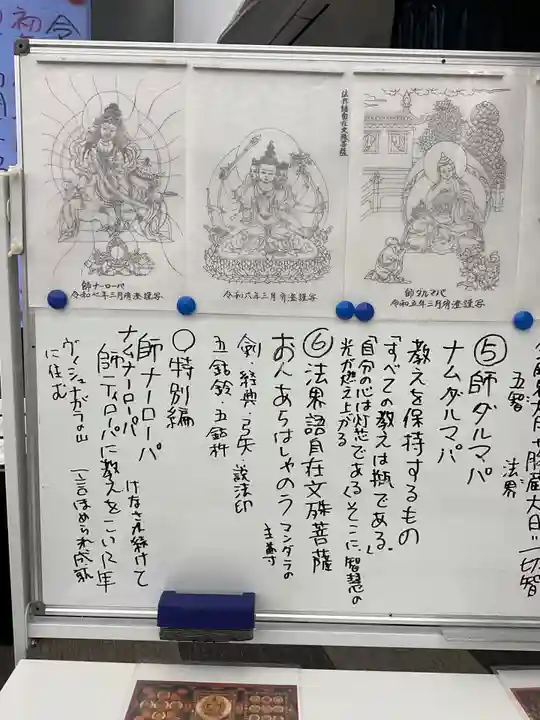 初
令
法界語自在文殊菩薩
師ナーローパ
令和七年三月
謹写
令和六年三月
謹写
師ダルマパ
令和五年三月
謹写
胎蔵大日＝一切智
五智 法界
⑤師ダルマパ
ナムダルマパ
教えを保持するもの
「すべての教えは瓶である。
「自分の心は灯芯である（そこに、智慧の
光が燃え上がる
⑥法界語自在文殊菩薩
おん あらはしゃのう マンダラの
主尊
剣・経典・弓矢・説法印
五鈷鈴・五鈷杵
○特別編
師ナーローパ
ナムナーローパ けなされ続けて
師ティローパに教えをこい12年
の山 一言ほめられ成就
に住む